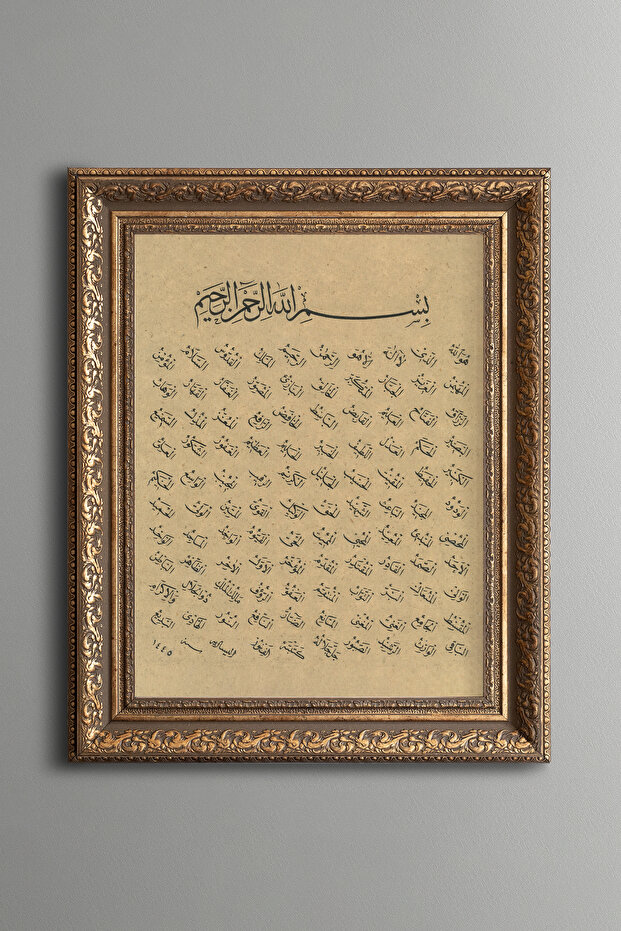 بِسْمِ اللّٰهِ الرَّحْمٰنِ الرَّحِيمِ
هو الله الذي لا اله الا هو الرحمن الرحيم الملك القدوس السلام المؤمن
المهيمن العزيز الجبار المتكبر الخالق البارئ المصور الغفار القهار الوهاب
الرزاق الفتاح العليم القابض الباسط الخافض الرافع المعز المذل السميع
البصير الحكم العدل اللطيف الخبير الحليم العظيم الغفور الشكور العلي
الكبير الحفيظ المقيت الحسيب الجليل الكريم الرقيب المجيب الواسع الحكيم
الودود المجيد الباعث الشهيد الحق الوكيل القوي المتين الولي الحميد
المحصي المبدئ المعيد المحيي المميت الحي القيوم الواجد الماجد الواحد
الاحد الصمد القادر المقتدر المقدم المؤخر الاول الآخر الظاهر الباطن
الوالي المتعال البر التواب المنتقم العفو الرؤف مالك الملك ذو الجلال والاكرام
المقسط الجامع الغني المغني المانع الضار النافع النور الهادي البديع
الباقي الوارث الرشيد الصبور جل جلاله كتبه ١٤٤٥